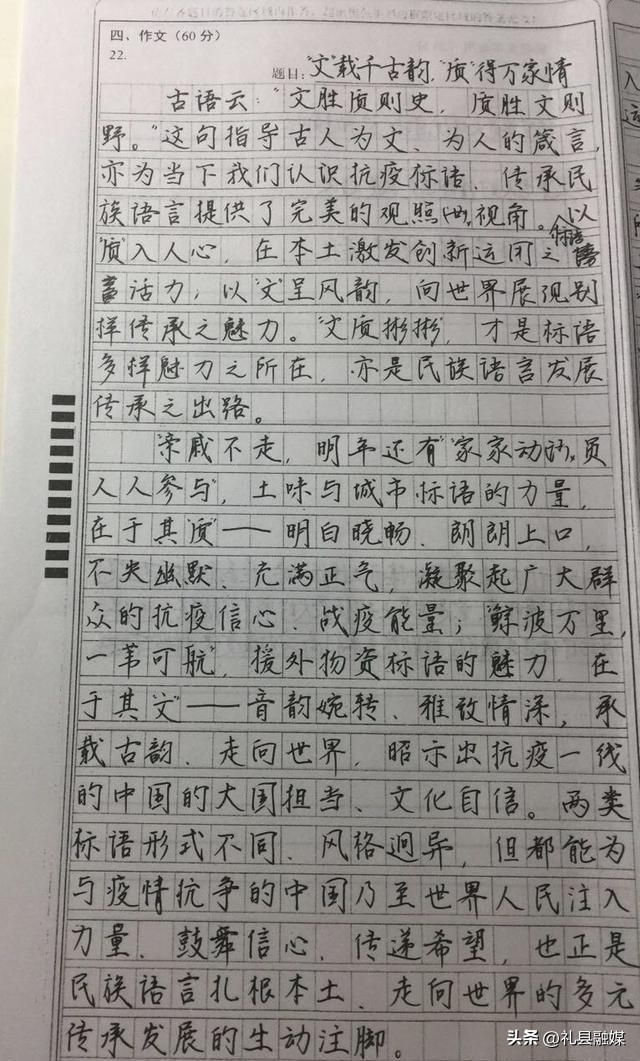 四、作文（60分）
22.
题目："文"载千古韵，"质"得万家情
古语云："文胜质则史，质胜文则
野。"这句指导古人为文、为人的箴言，
亦为当下我们认识抗疫标语、传承民
族语言提供了完美的观照视角。以
"质"入人心，在本土激发创新运用之标语
活力；以"文"呈风韵，向世界展现别
样传承之魅力。"文质彬彬"，才是标语
多样魅力之所在，亦是民族语言发展
传承之出路。
"亲戚不走，明年还有""家家动员，
人人参与"，土味与城市标语的力量，
在于其"质"——明白晓畅、朗朗上口，
不失幽默、充满正气，凝聚起广大群
众的抗疫信心、战疫能量；"鲸波万里，
一苇可航"，援外物资标语的魅力，在
于其"文"——音韵婉转、雅致情深，承
载古韵、走向世界，昭示出抗疫一线
的中国的大国担当、文化自信。两类
标语形式不同、风格迥异，但都能为
与疫情抗争的中国乃至世界人民注入
力量、鼓舞信心、传递希望，也正是
民族语言扎根本土、走向世界的多元
传承发展的生动注脚。
头条 @礼县融媒